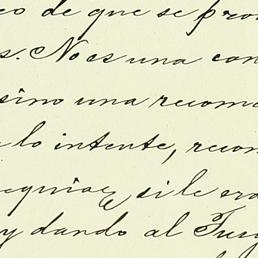 co de que se pro
s. No es una con
sino una recom
lo intente, recon
equiae, si le era
y dando al Juz